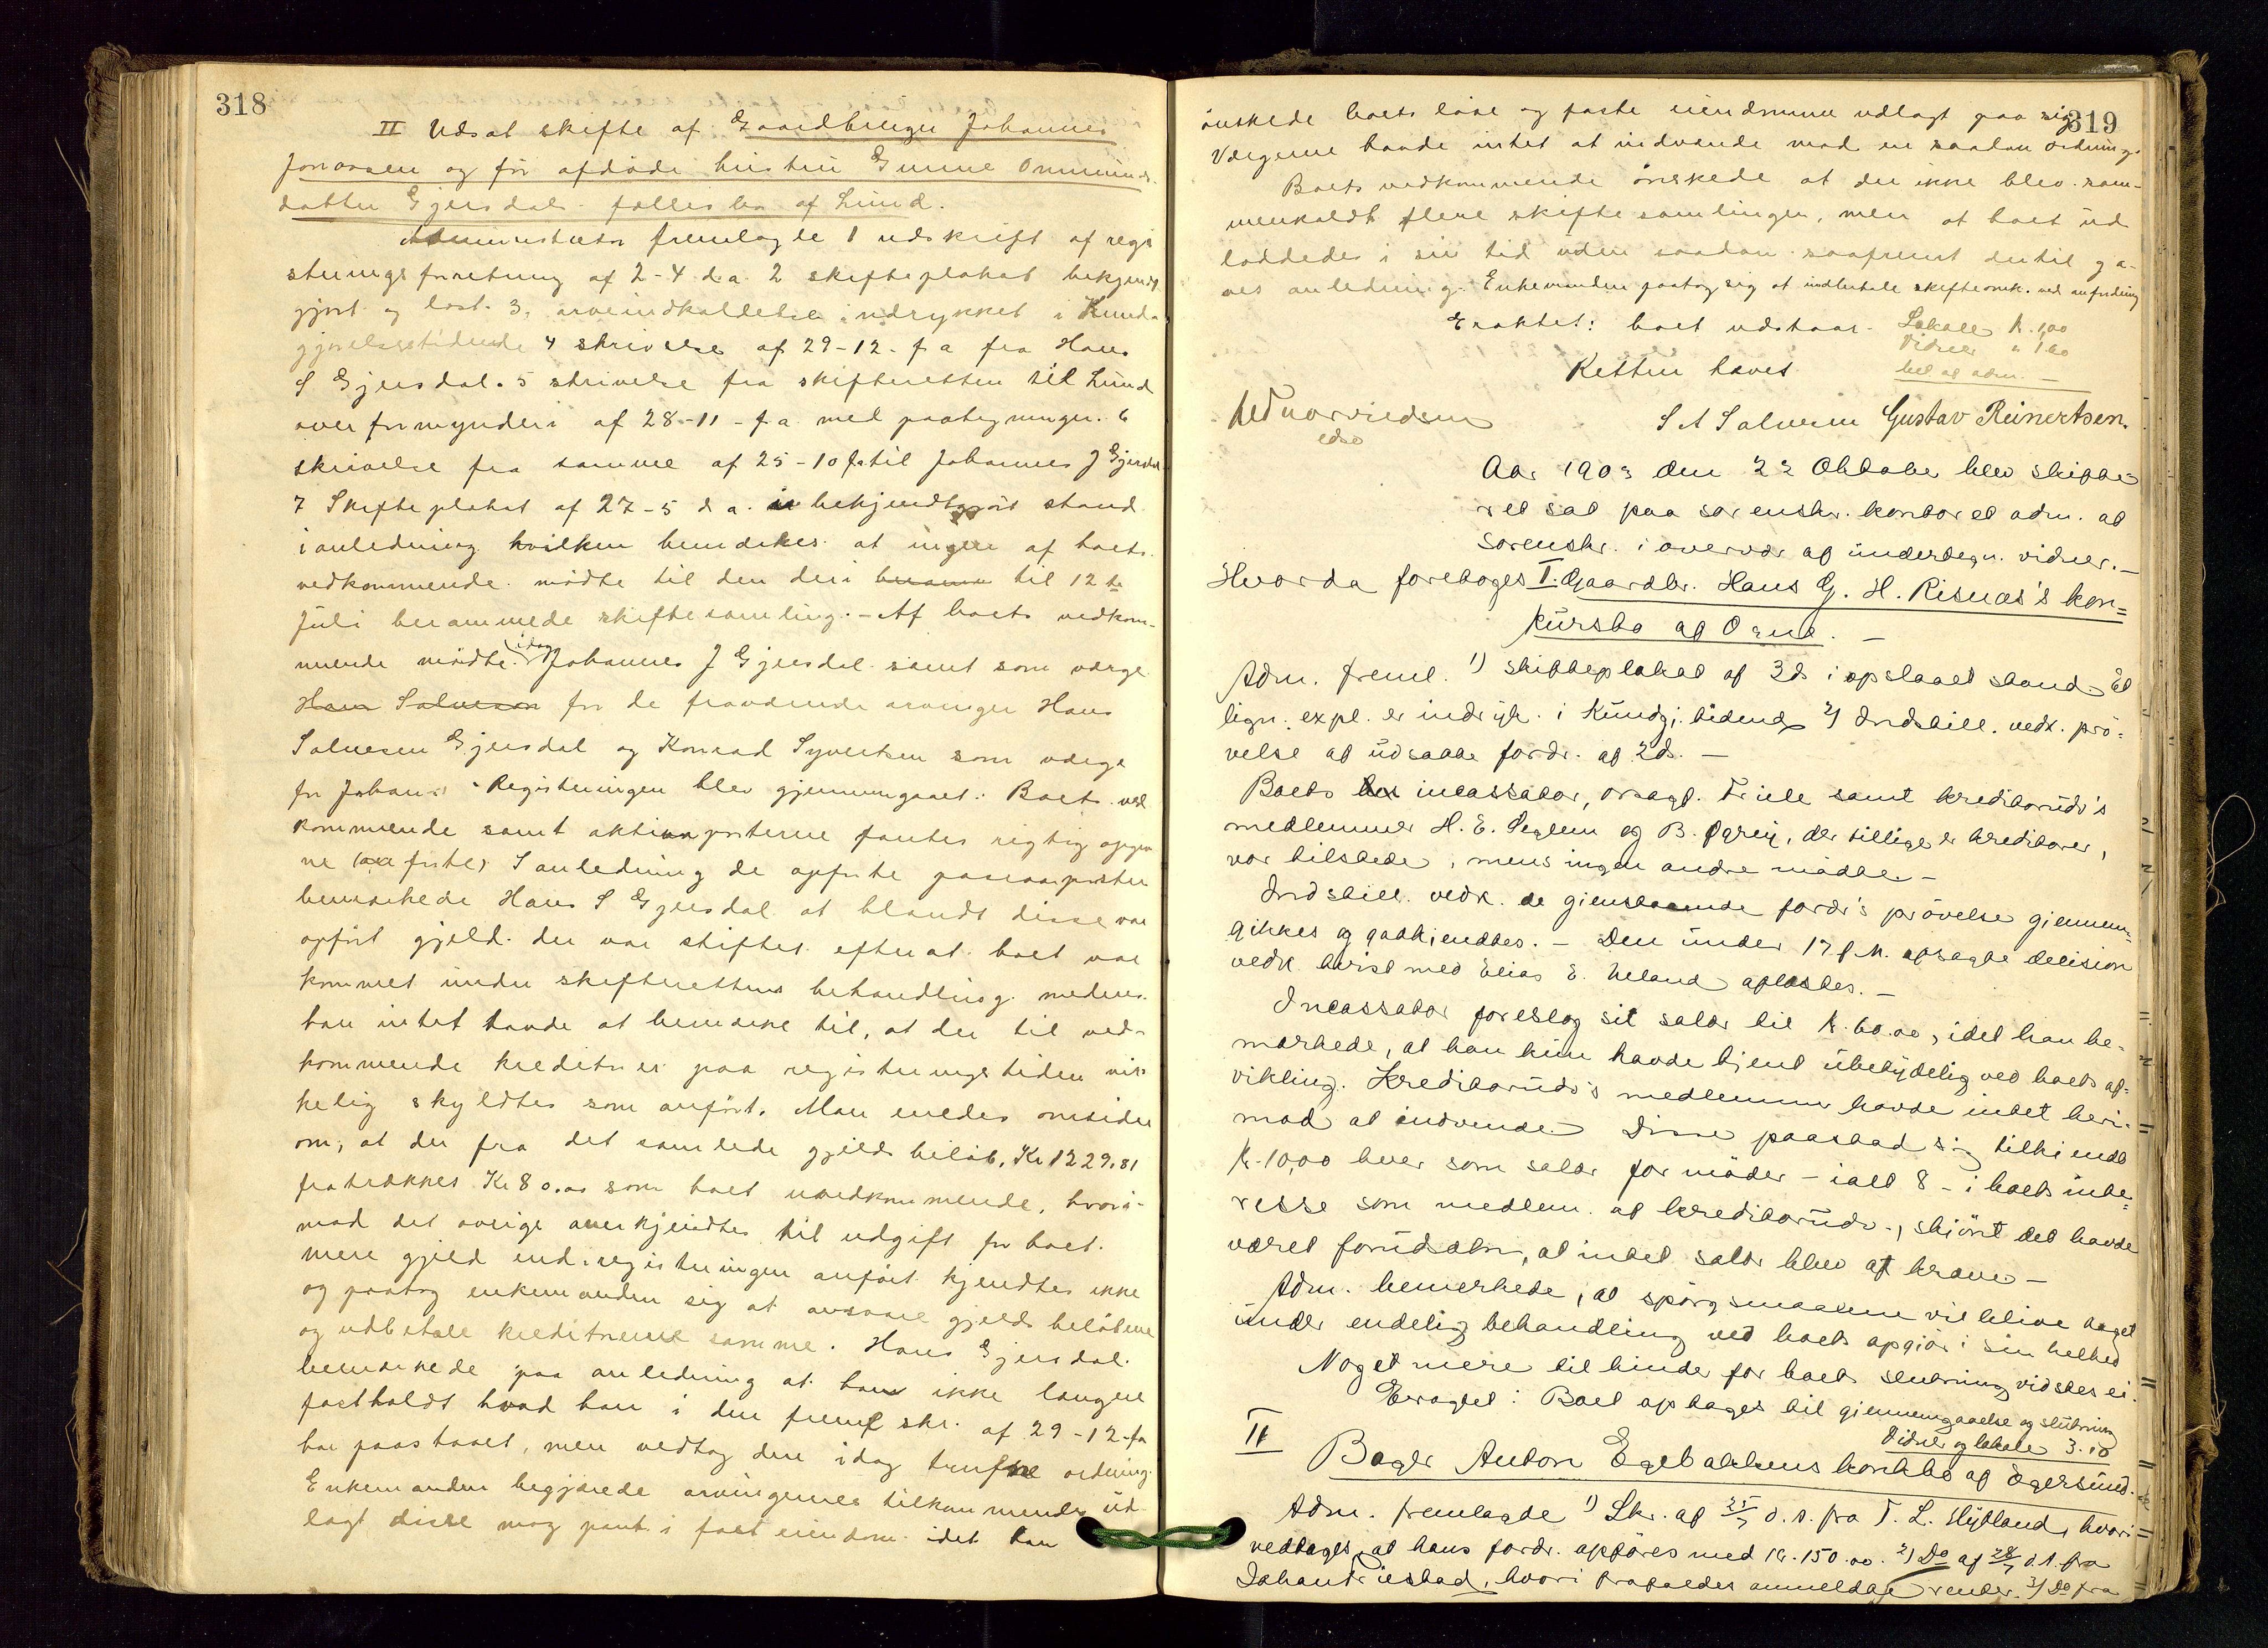 318
II Udsat skifte af Gaardbruger Johannes
Jonassen og før afdøde hustru Gunne Ommunds-
datter Gjersdal fællesbo af Lund.
Administrator fremlagte 1 udskrift af regi
streringsforretning af 2-4 d.a. 2 skifteplakat bekjendt
gjort og læst. 3, arveindkaldelse indrykket i Kunda
gjørelsestidende 4 skrivelse af 29-12- f a fra Hans
S Gjersdal. 5 skrivelse fra skifteretten til Lund
overformynderi af 28-11- f.a med paategninger. 6
skrivelse fra samme af 25-10 f.a til Johannes J Gjersdal
7 Skifteplakat af 27-5 d a. i bekjendtgjort stand
i anledning hvilken bemærkes at ingen af boets
vedkommende mødte til den deri til 12te
Juli berammede skiftesamling. - Af boets vedkom-
mende mødte idag Johannes J Gjersdal samt som værge
Hans Salvesen for de fraværende arvinger Hans
Salvesen Gjersdal og Konrad Syvertsen som værge
for Johan. Registreringen blev gjennemgaaet: Boets ved
kommende samt aktivaposterne fantes rigtig opgiv
ne (anførte) I anledning de opførte passivaposter
bemærkede Hans S Gjersdal at blandt disse var
opført gjæld der var stiftet efterat boet var
kommet under skifterettens behandling medens
han intet havde at bemærke til, at der til ved-
kommende kreditorer paa registreringstiden vir
kelig skyldtes som anført. Man enedes omsider
om, at der fra det samlede gjældsbeløb, Kr 1229,81
fratrækkes Kr 80.00 som boet uvedkommende, hvori-
mod det øvrige anerkjendtes til udgift for boet.
mere gjæld end i registreringen anført kjendtes ikke
og paatog enkemanden sig at ansvare gjældsbeløbene
og udbetale kreditorerne samme. Hans Gjersdal
bemærkede paa anledning at han ikke længere
fastholdt hvad han i den fremf skr. af 29-12-fa
har paastaaet, men vedtog den idag trufne ordning.
Enkemanden begjærede arvingernes tilkommende ud
lagt disse mog pant i fast eiendom idet han
319
ønskede boets løse og faste eiendomme udlagt paa sig
Værgerne havde intet at indvende mod en saadan ordning.
Boets vedkommende ønskede at der ikke blev sam-
menkaldt flere skiftesamlinger, men at boet ud
loddedes i sin tid uden saadan saafremt dertil ga-
ves anledning. Enkemanden paatog sig at indbetale skifteomk. ved anfordring
Eragtet: boet udstaar. Lokale k. 1,00
Vidner " 1.60
Retten hævet
S A Salvesen Gustav Reinertsen.
Aar 1903 den 22 Oktober blev skifte-
ret sat paa sorenskr. kontoret adm. af
sorenskr. i overvær af undertegn. vidner. -
Hvorda foretoges I. Gaardbr. Hans G. H. Risnæs's kon=
kursbo af Ogna. -
Adm. freml. 1) skifteplakat af 3ds i opslaaet stand. Et
lign. expl. er indryk. i Kundgj. tidende 2) Indstill. vedr. prö-
velse af udsatte fordr. af 2ds. -
Boets incassator, orsagf. Friele samt kreditorudv's
medlemmer H. E. Seglem og B. Ogrey, der tillige er kreditorer,
var tilstede, mens ingen andre mødte. -
Indstill. vedr. de gjenstaaende fordr's prøvelse gjennem=
gikkes og godkjendtes. - Den under 17 f.M. afsagte decision
vedr. tvist med Elias E. Ueland oplæstes. -
Incassator foreslog sit salær til k. 60.00, idet han be-
mærkede, at han kun havde tjent ubetydelig ved boets af-
vikling. Kreditorudv's medlemmer havde intet heri-
mod at indvende. Disse paastod sig tilkjendt
k. 10,00 hver som salær for møder - ialt 8 - i boets inte-
resse som medlem. af kreditorudv., skjönt det havde
været forudsætn, at intet salær blev at kræve -
Adm. bemerkede, at spörgsmaalene vil blive taget
under endelig behandling ved boets opgjör i sin helhed
Noget mere til hinder for boets slutning vidstes ei.
Eragtet: Boet optages til gjennemgaaelse og slutning
Vidner og lokale 3.10
II
Bager Anton Egebakkens konkbo af Egersund.
Adm. fremlagde 1) Skr. af 25/7 d.A. fra T. L. Hytland, hvori
vedtages, at hans fordr. opføres med kr. 150.00. 2) Do af 28/7 d.A. fra
Johan Friestad, hvori frafaldes anmeldte renter. 3) Do fra